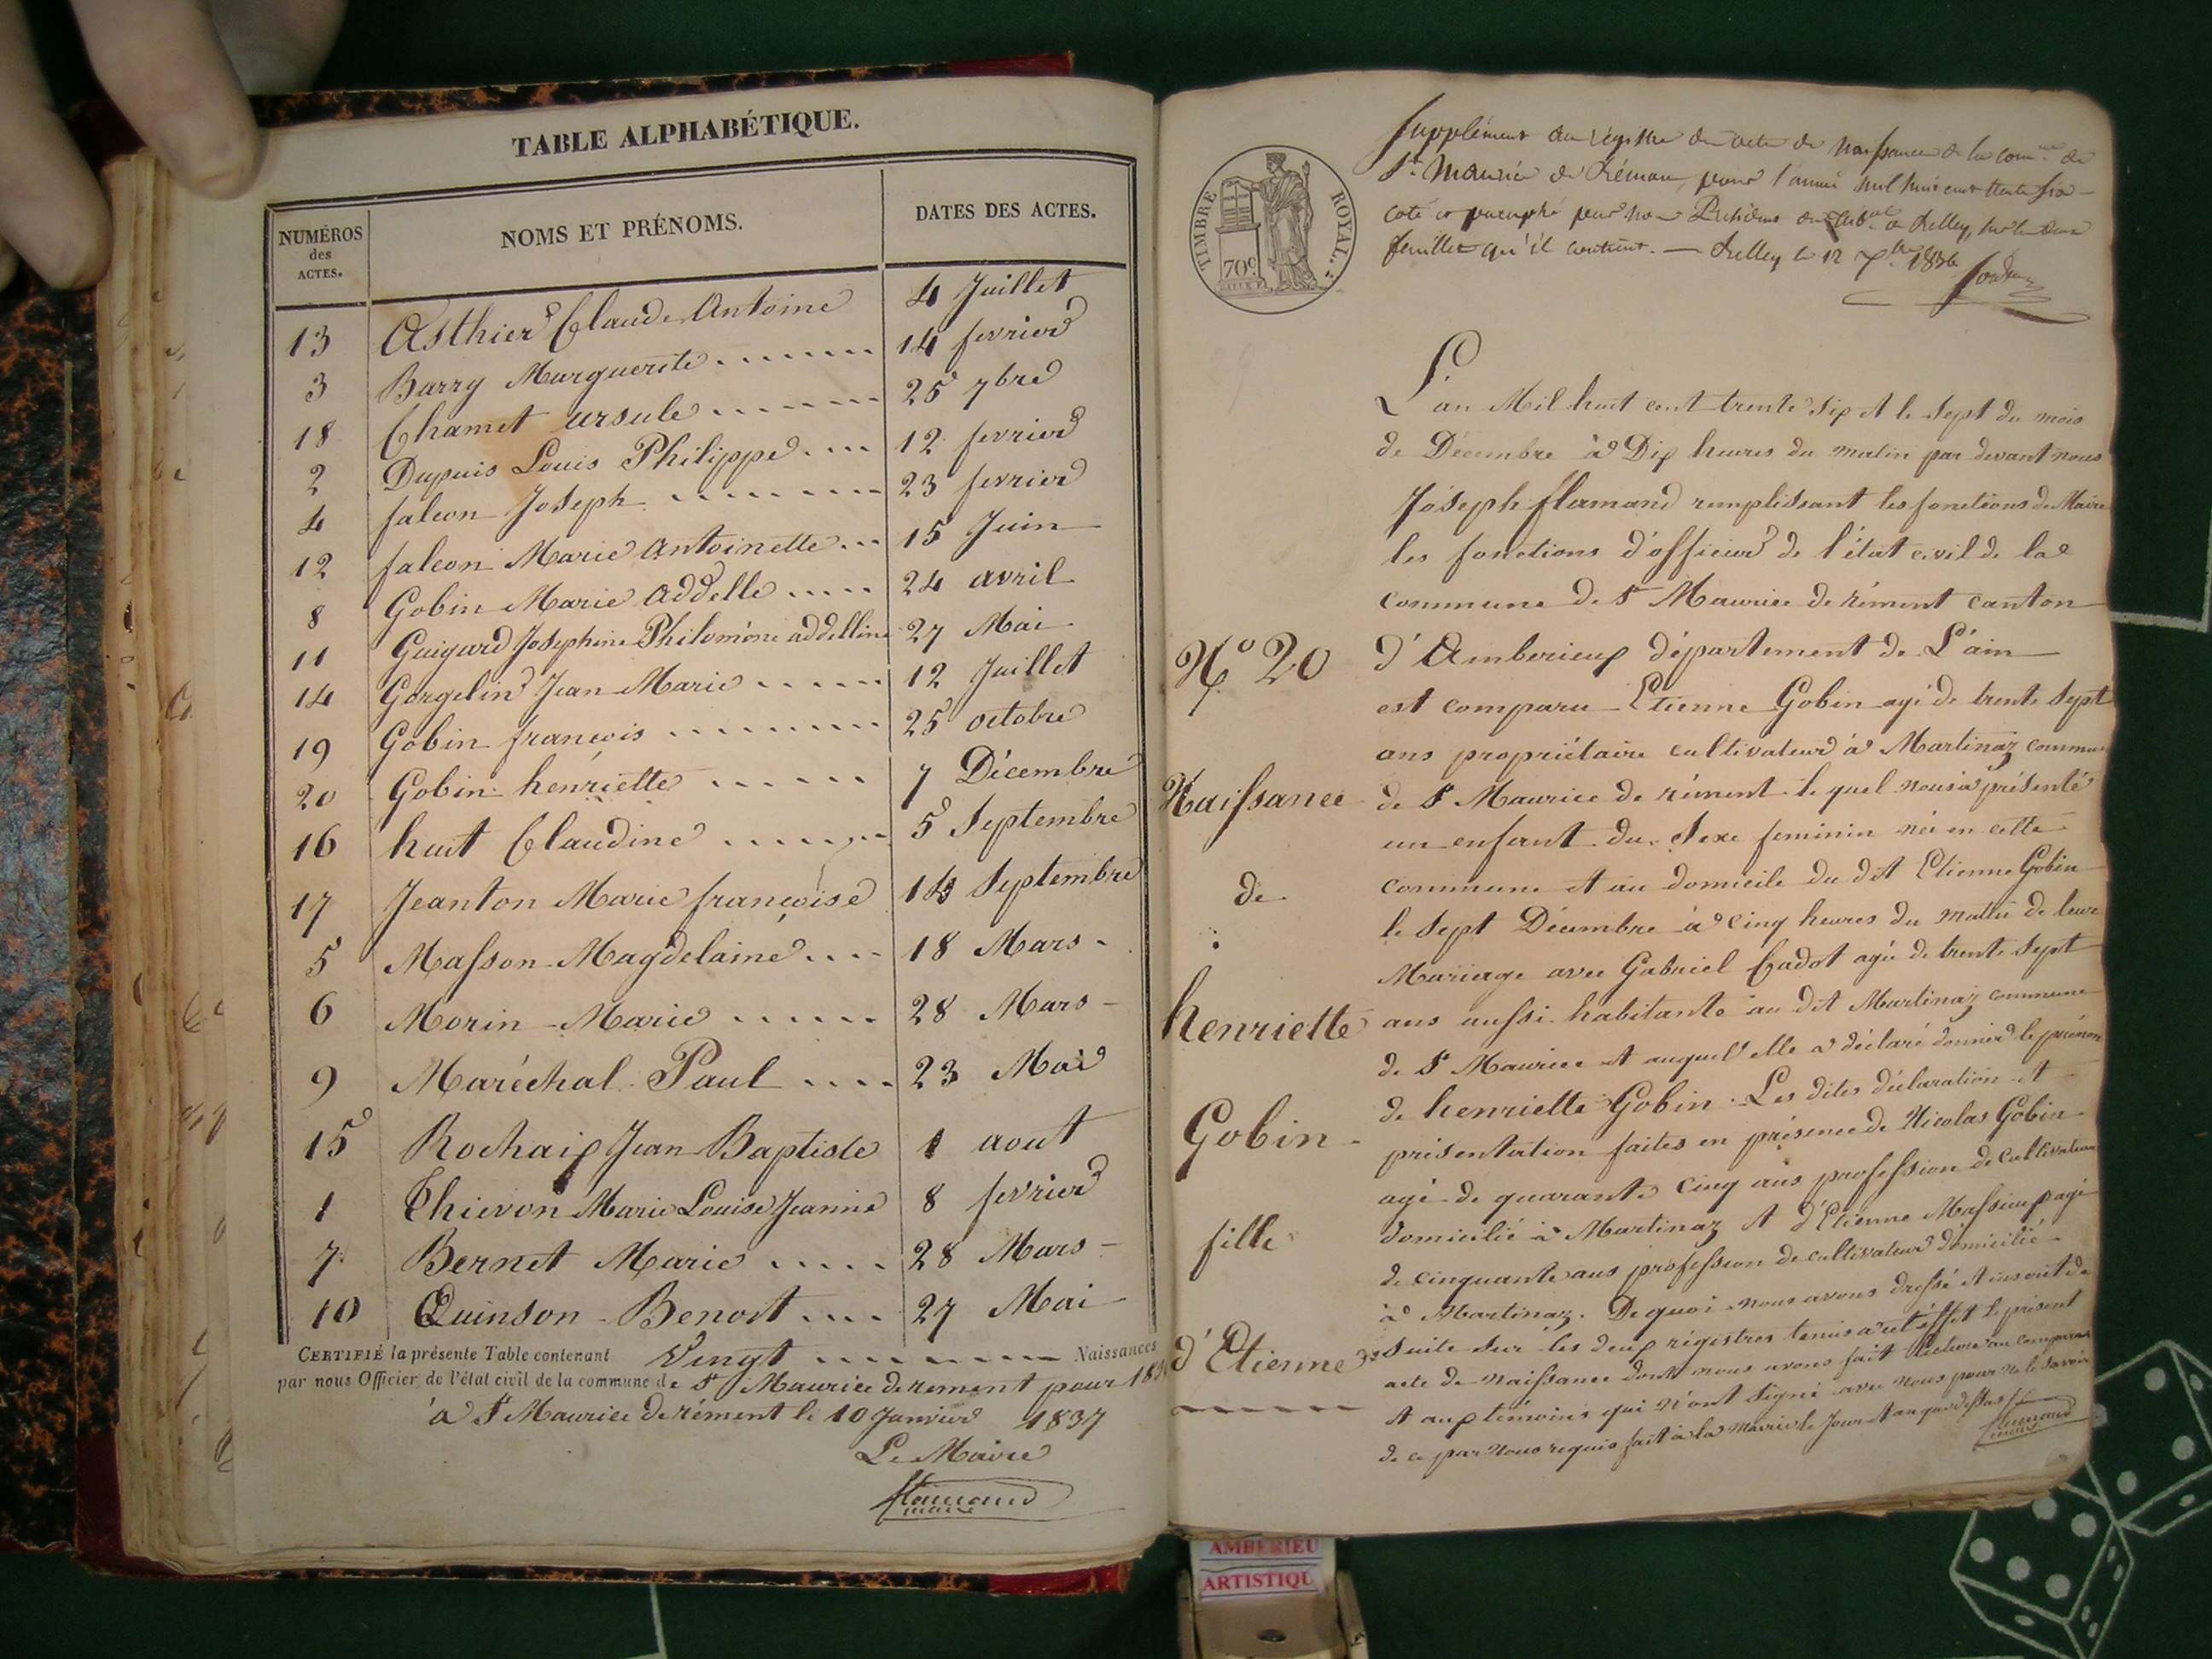 TABLE ALPHABÉTIQUE.
NUMÉROS des ACTES. NOMS ET PRÉNOMS. DATES DES ACTES.
13 Asthier Claude Antoine 4 Juillet
3 Barry Marguerite 14 fevrier
18 Chamet ursule 25 7bre
2 Dupuis Louis Philippe 12 fevrier
4 falcon Joseph 23 fevrier
12 falcon Marie Antoinette 15 Juin
8 Gobin Marie Addelle 24 avril
11 Guigard Josephine Philomène addelline 27 Mai
14 Gorgelin Jean Marie 12 Juillet
19 Gobin françois 25 octobre
20 Gobin henriette 7 Décembre
16 huit Claudine 5 Septembre
17 Jeanton Marie françoise 14 Septembre
5 Masson Magdelaine 18 Mars
6 Morin Marie 28 Mars
9 Maréchal Paul 23 Mai
15 Rochaix Jean Baptiste 1 aout
1 Thievon Marie Louise Jeanne 8 fevrier
7 Bernet Marie 28 Mars
10 Quinson Benoit 27 Mai
CERTIFIÉ la présente Table contenant Vingt Naissances
par nous Officier de l'état civil de la commune de St Maurice de rement pour
à St Maurice de rément le 10 Janvier 1837
Le Maire
flamand
maire
TIMBRE ROYAL.
70c
Supplément au régistre des actes de naissance de la comne de
St Maurice de Rémens, pour l'année mil huit cent trente six
coté et paraphé par nous Président du à Belley, sur les deux
feuillets qu'il contient. — Belley le 12 1836
L'an Mil huit cent trente six et le sept du mois
de Décembre à Dix heures du matin par devant nous
Joseph flamand remplissant les fonctions de Maire
les fonctions d'officier de l'état civil de la
commune de St Maurice de rément canton
d'Amberieux département de L'ain
est comparu Etienne Gobin agé de trente sept
ans propriétaire cultivateur à Martinaz commune
de St Maurice de rément le quel nous a présenté
un enfant du Sexe feminin né en cette
commune et au domicile du dit Etienne Gobin
le sept Décembre à cinq heures du matin de leur
Mariage avec Gabriel Cadot agé de trente sept
ans aussi habitante au dit Martinaz commune
de St Maurice et auquel elle a déclaré donner le prénom
de henriette Gobin. Les dites déclaration et
présentation faites en présence de Nicolas Gobin
agé de quarante cinq ans profession de cultivateur
domicilié à Martinaz et d'Etienne Massieux agé
de cinquante ans profession de cultivateur domicilié
à Martinaz. De quoi nous avons dressé et inscrit de
suite sur les deux régistres tenus à cet effet le présent
acte de naissance dont nous avons fait lecture au comparant
et aux témoins qui n'ont signé avec nous pour ne le savoir
de ce par nous requis fait à la mairie le jour et an que dessus
flamand
maire
No 20
Naissance
de
henriette
Gobin
fille
d'Etienne
AMBERIEU
ARTISTIQU